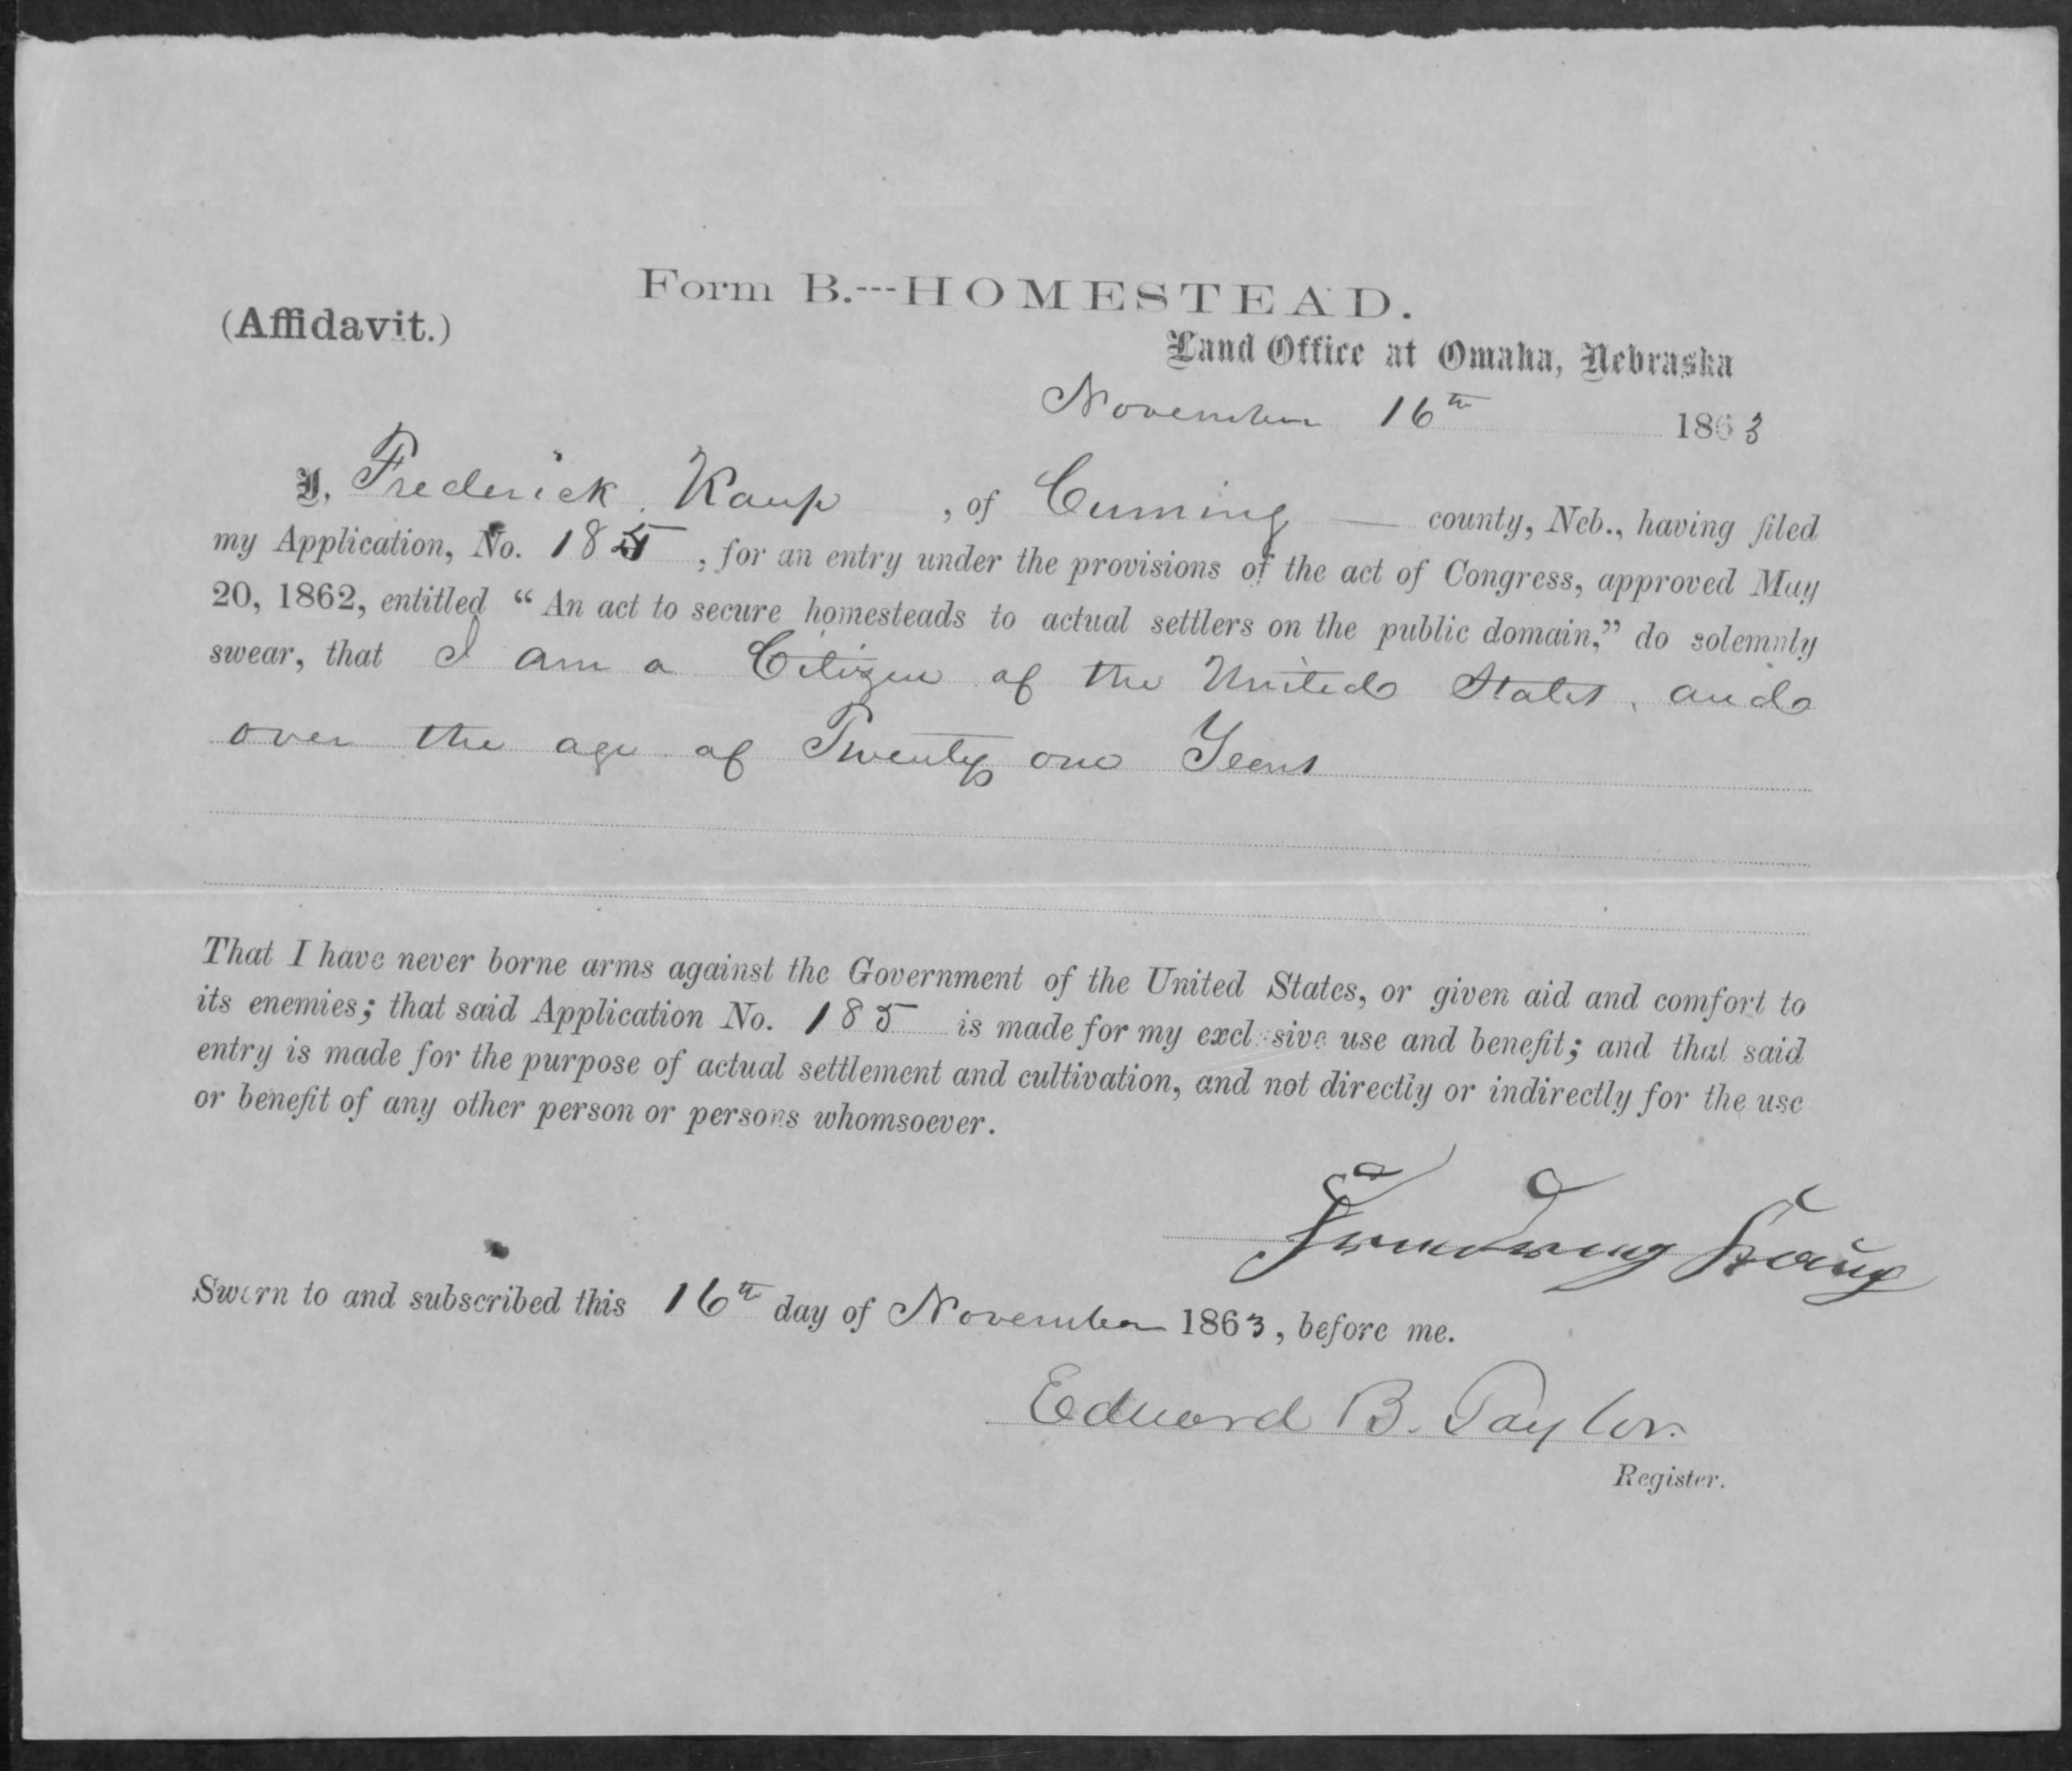 Form B.---HOMESTEAD.
(Affidavit.)
Land Office at Omaha, Nebraska
November 16th 1863
I, Frederick Kaup, of Cuming — county, Neb., having filed
my Application, No. 185, for an entry under the provisions of the act of Congress, approved May
20, 1862, entitled “An act to secure homesteads to actual settlers on the public domain,” do solemnly
swear, that I am a Citizen of the United States, and
over the age of Twenty one Years
That I have never borne arms against the Government of the United States, or given aid and comfort to
its enemies; that said Application No. 185 is made for my exclusive use and benefit; and that said
entry is made for the purpose of actual settlement and cultivation, and not directly or indirectly for the use
or benefit of any other person or persons whomsoever.
Kaup
Sworn to and subscribed this 16th day of November 1863, before me.
Edward B. Taylor.
Register.